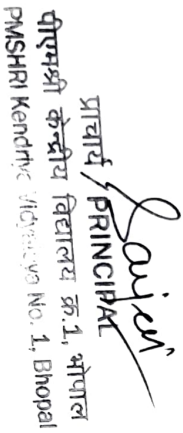 प्राचार्य / PRINCIPAL
पीएमश्री केन्द्रीय विद्यालय क्र.1, भोपाल
PMSHRI Kendriya Vidyalaya No. 1, Bhopal